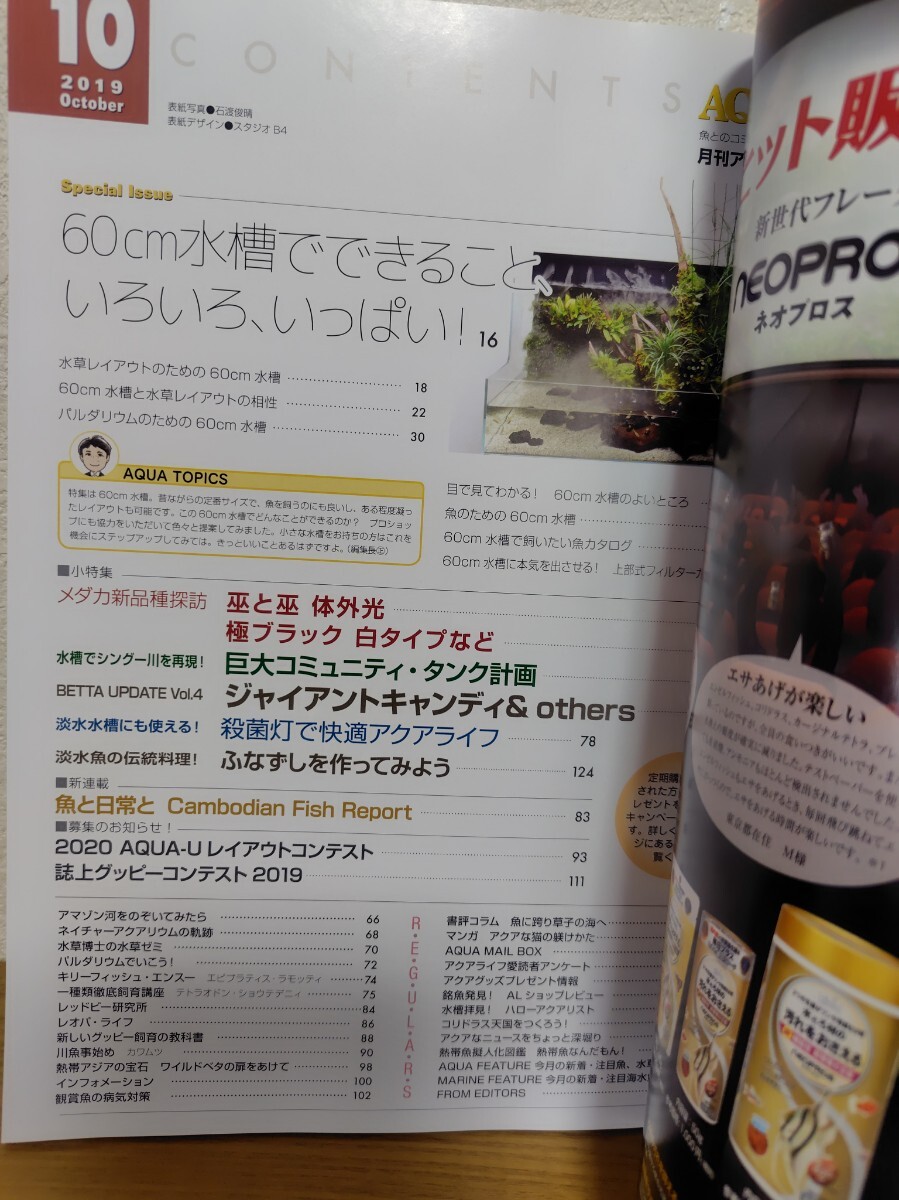 10
2019
October
CONTENTS
表紙写真●石渡俊晴
表紙デザイン●スタジオB4
魚とのコミ
月刊ア
Special Issue
60cm水槽でできること、
いろいろ、いっぱい! 16
水草レイアウトのための60cm水槽 18
60cm水槽と水草レイアウトの相性 22
パルダリウムのための60cm水槽 30
AQUA TOPICS
特集は60cm水槽。昔ながらの定番サイズで、魚を飼うのにも良いし、ある程度凝っ
たレイアウトも可能です。この60cm水槽でどんなことができるのか? プロショッ
プにも協力をいただいて色々と提案してみました。小さな水槽をお持ちの方はこれを
機会にステップアップしてみては。きっといいことあるはずですよ。(編集長
目で見てわかる! 60cm水槽のよいところ
魚のための60cm水槽
60cm水槽で飼いたい魚カタログ
60cm水槽に本気を出させる! 上部式フィルター
■小特集
メダカ新品種探訪 巫と巫 体外光
極ブラック 白タイプなど
水槽でシングー川を再現! 巨大コミュニティ・タンク計画
BETTA UPDATE Vol.4 ジャイアントキャンディ& others
淡水水槽にも使える! 殺菌灯で快適アクアライフ 78
淡水魚の伝統料理! ふなずしを作ってみよう 124
■新連載
魚と日常と Cambodian Fish Report 83
■募集のお知らせ!
2020 AQUA-Uレイアウトコンテスト 93
誌上グッピーコンテスト2019 111
定期購
された方
レゼントを
キャンペー
す。詳しく
ジにある
覧く
REGULARS
アマゾン河をのぞいてみたら 66
ネイチャーアクアリウムの軌跡 68
水草博士の水草ゼミ 70
パルダリウムでいこう! 72
キリーフィッシュ・エンスー エピプラティス・ラモッティ 74
一種類徹底飼育講座 テトラオドン・ショウテデニィ 75
レッドビー研究所 84
レオパ・ライフ 86
新しいグッピー飼育の教科書 88
川魚事始め カワムツ 90
熱帯アジアの宝石 ワイルドベタの扉をあけて 98
インフォメーション 100
観賞魚の病気対策 102
書評コラム 魚に跨り草子の海へ
マンガ アクアな猫の躾けかた
AQUA MAIL BOX
アクアライフ愛読者アンケート
アクアグッズプレゼント情報
銘魚発見! ALショップレビュー
水槽拝見! ハローアクアリスト
コリドラス天国をつくろう!
アクアなニュースをちょっと深堀り
熱帯魚擬人化図鑑 熱帯魚なんだもん!
AQUA FEATURE 今月の新着・注目魚、水草
MARINE FEATURE 今月の新着・注目海水
FROM EDITORS
ヒット販
新世代フレー
NEOPRO
ネオプロス
エサあげが楽しい
東京都在住 M様
汚れをおさえる